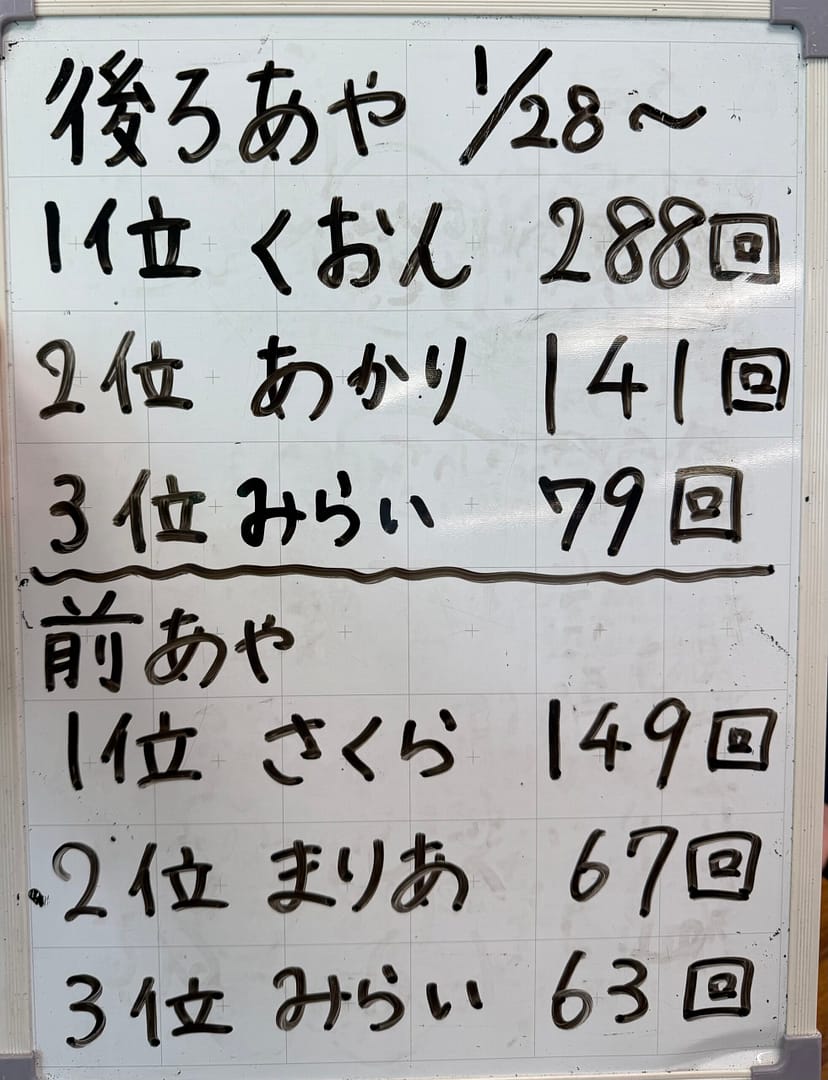 後ろあや 1/28〜
1位 くおん 288回
2位 あかり 141回
3位 みらい 79回
前あや
1位 さくら 149回
2位 まりあ 67回
3位 みらい 63回